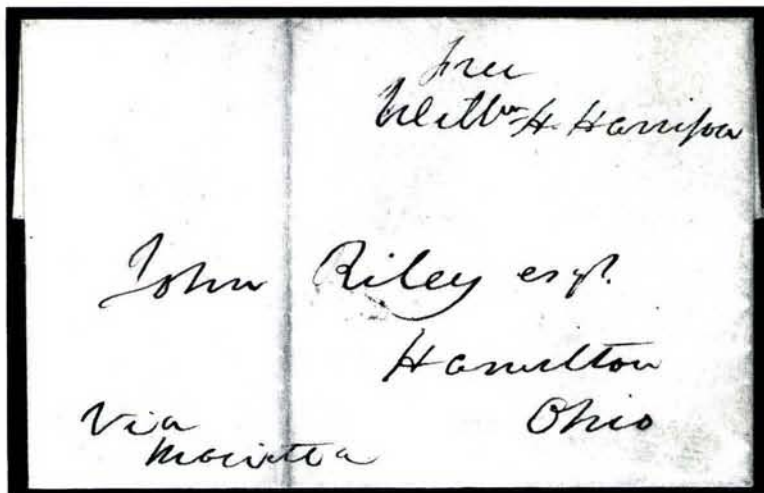 free
Will^m H. Harrison
John Riley esqr.
Hamilton
Ohio
Via
Marietta